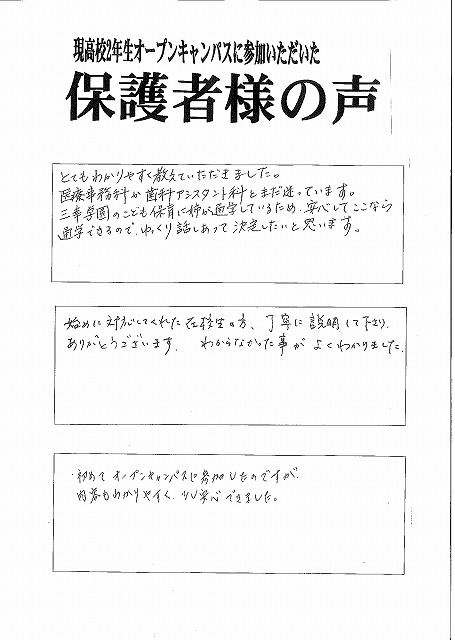 現高校2年生オープンキャンパスに参加いただいた
保護者様の声
とてもわかりやすく教えていただきました。
医療事務科か歯科アシスタント科とまだ迷っています。
三幸学園のこども保育に姉が通学しているため、安心してここなら
通学できるので、ゆっくり話しあって決定したいと思います。
始めに対応してくれた在校生の方、丁寧に説明して下さり
ありがとうございます。 わからなかった事が よくわかりました。
初めてオープンキャンパスに参加したのですが、
内容もわかりやすく、安心できました。